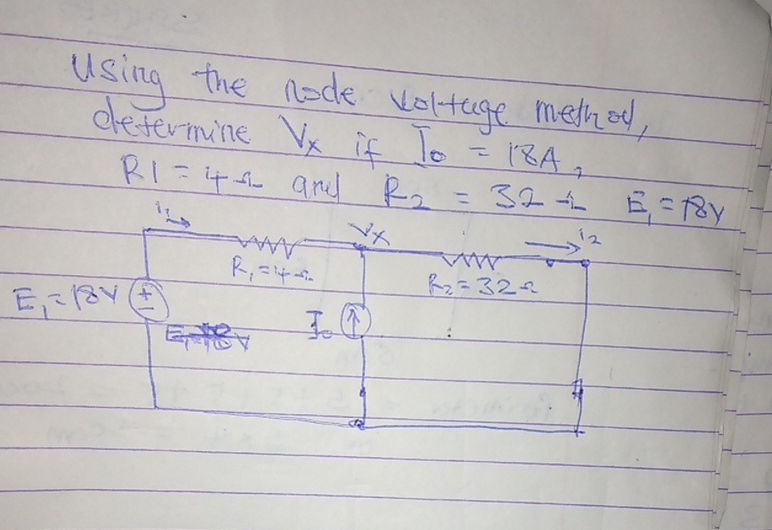 Using the node voltage method,
determine Vx if Io = 18A,
R1 = 4Ω and R2 = 32Ω E1 = 18V
i1 Vx i2
R1 = 4Ω R2 = 32Ω
E1 = 18V + - Io